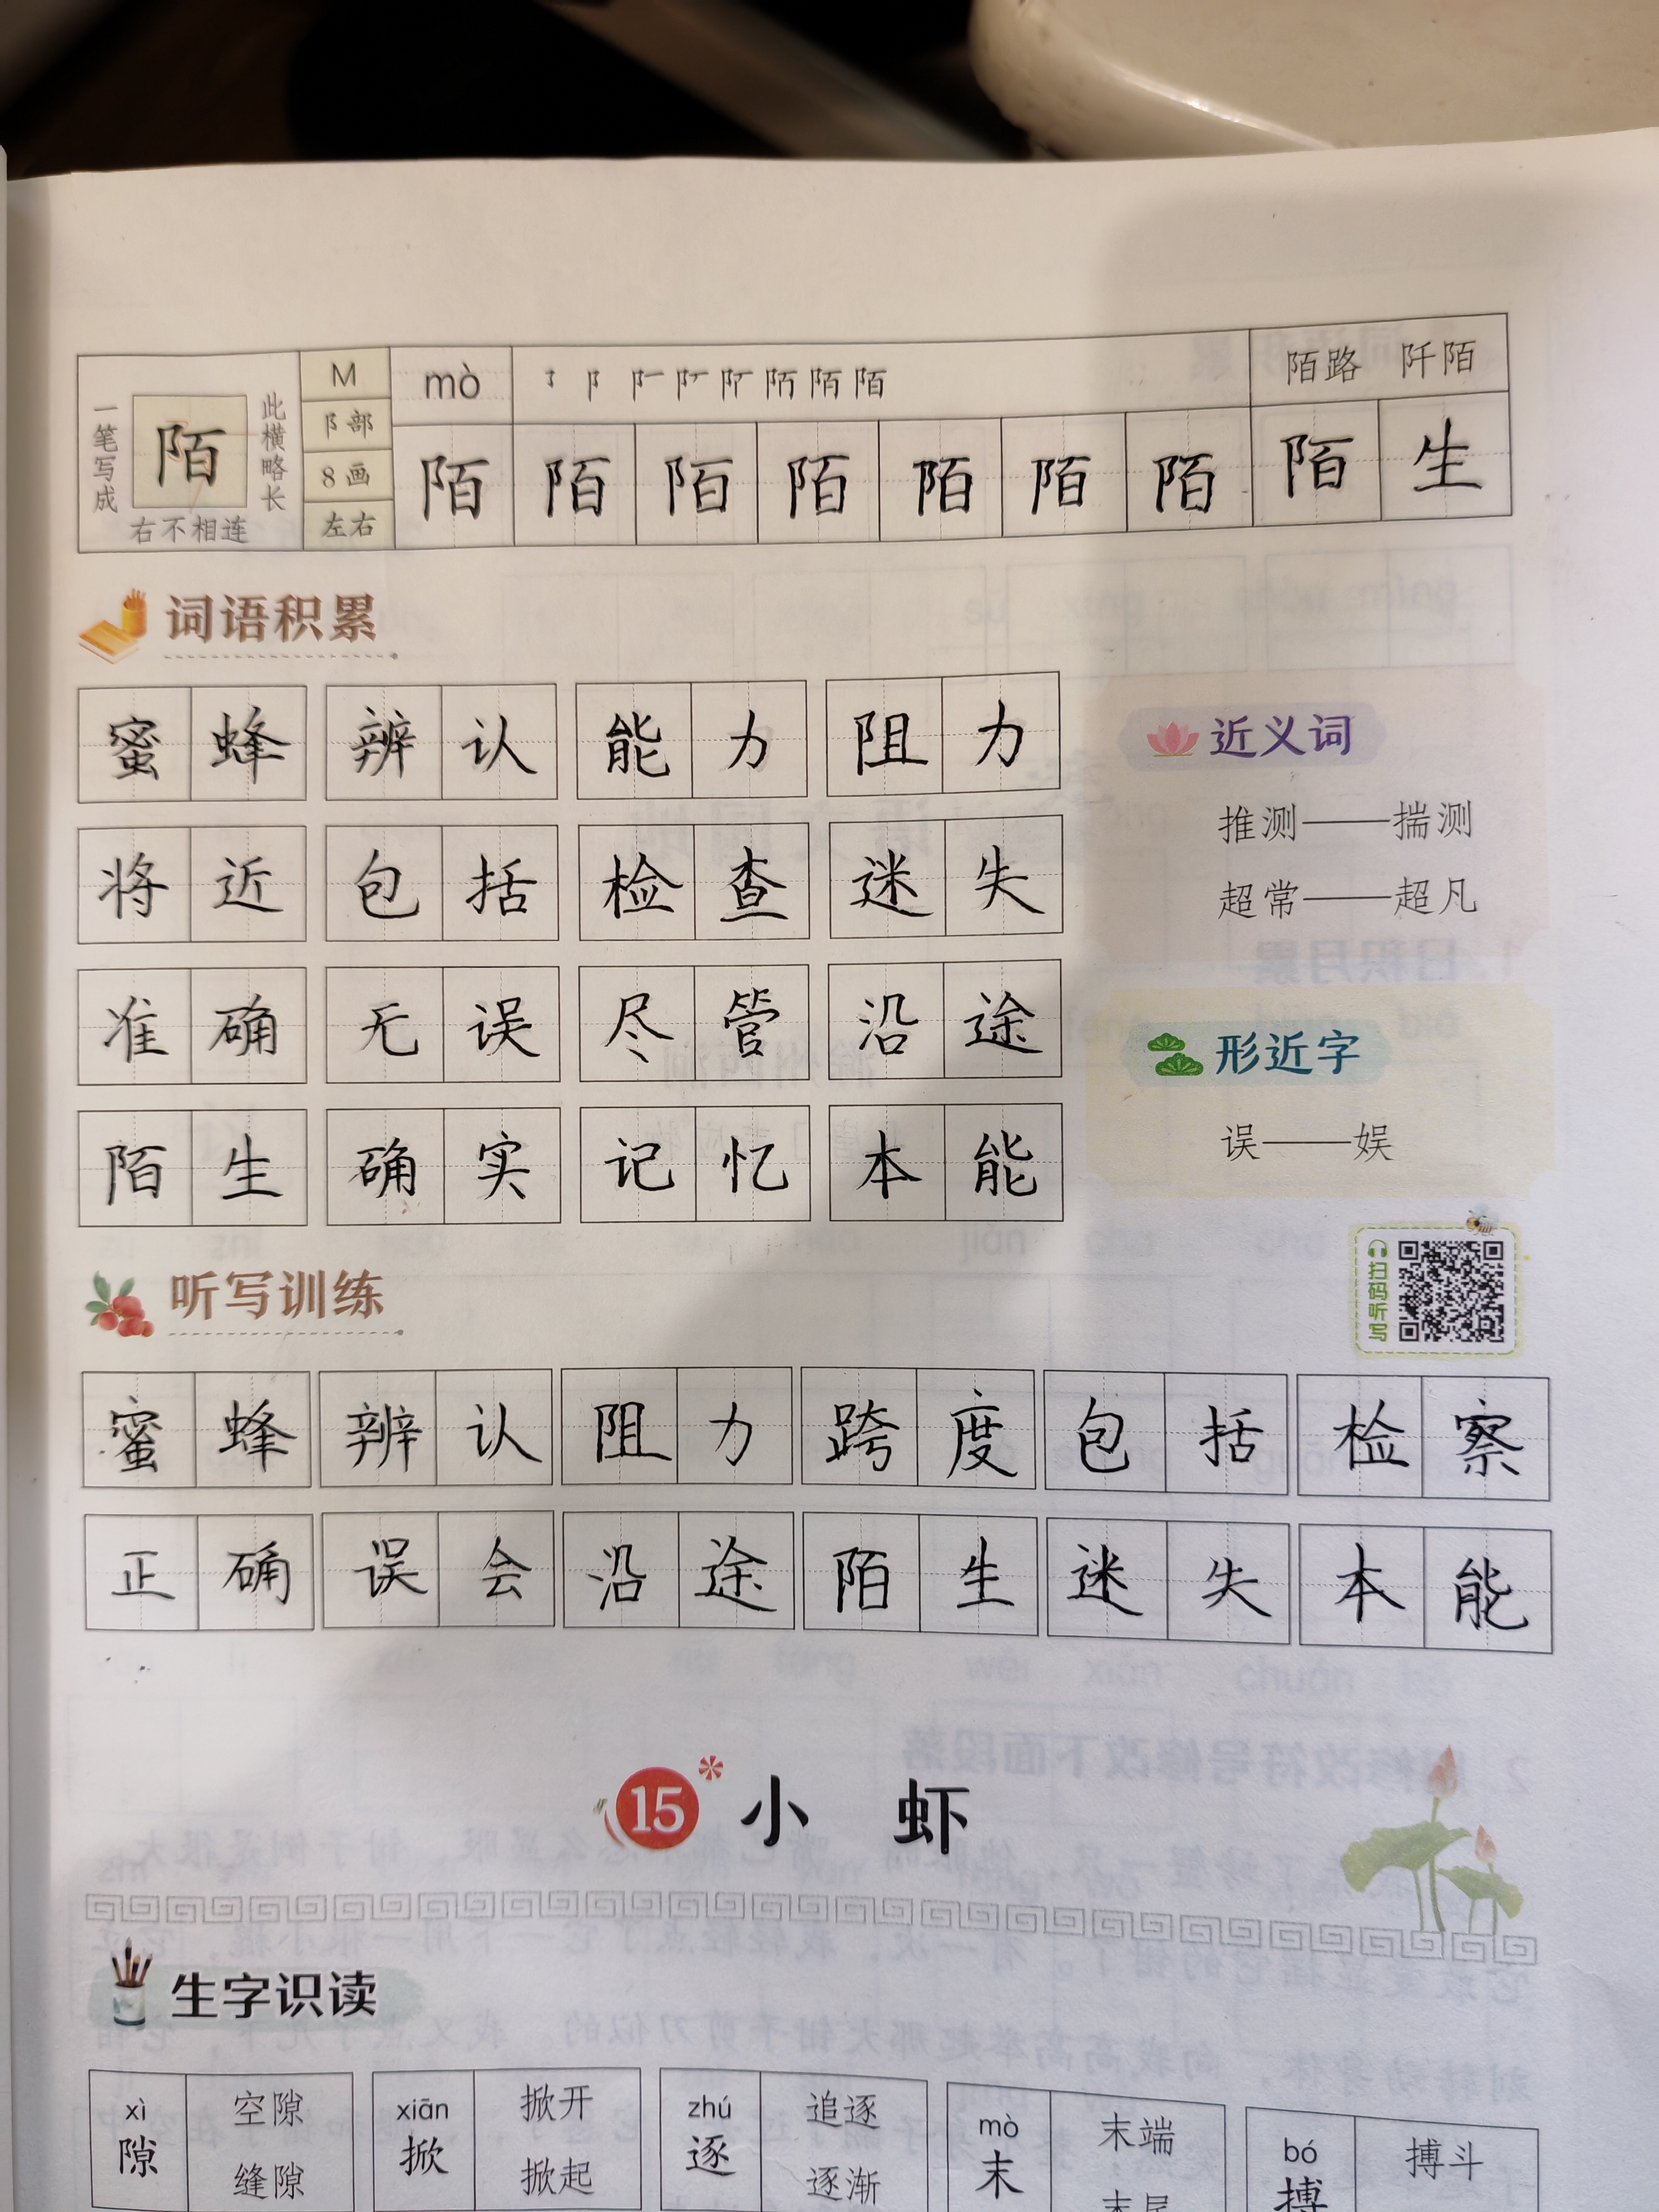 M mò 陌路 阡陌
一笔写成 陌 此横略长 阝部
8画
右不相连 左右
陌 陌 陌 陌 陌 陌 陌 陌 生
词语积累
蜜蜂 辨认 能力 阻力
将近 包括 检查 迷失
准确 无误 尽管 沿途
陌生 确实 记忆 本能
近义词
推测——揣测
超常——超凡
形近字
误——娱
扫码听写
听写训练
蜜蜂 辨认 阻力 跨度 包括 检察
正确 误会 沿途 陌生 迷失 本能
15* 小 虾
生字识读
xì 隙 空隙 缝隙
xiān 掀 掀开 掀起
zhú 逐 追逐 逐渐
mò 末 末端 末尾
bó 搏 搏斗